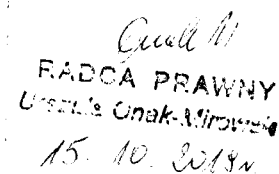 RADCA PRAWNY
Urszula Onak-Mirowska
15.10.2018r